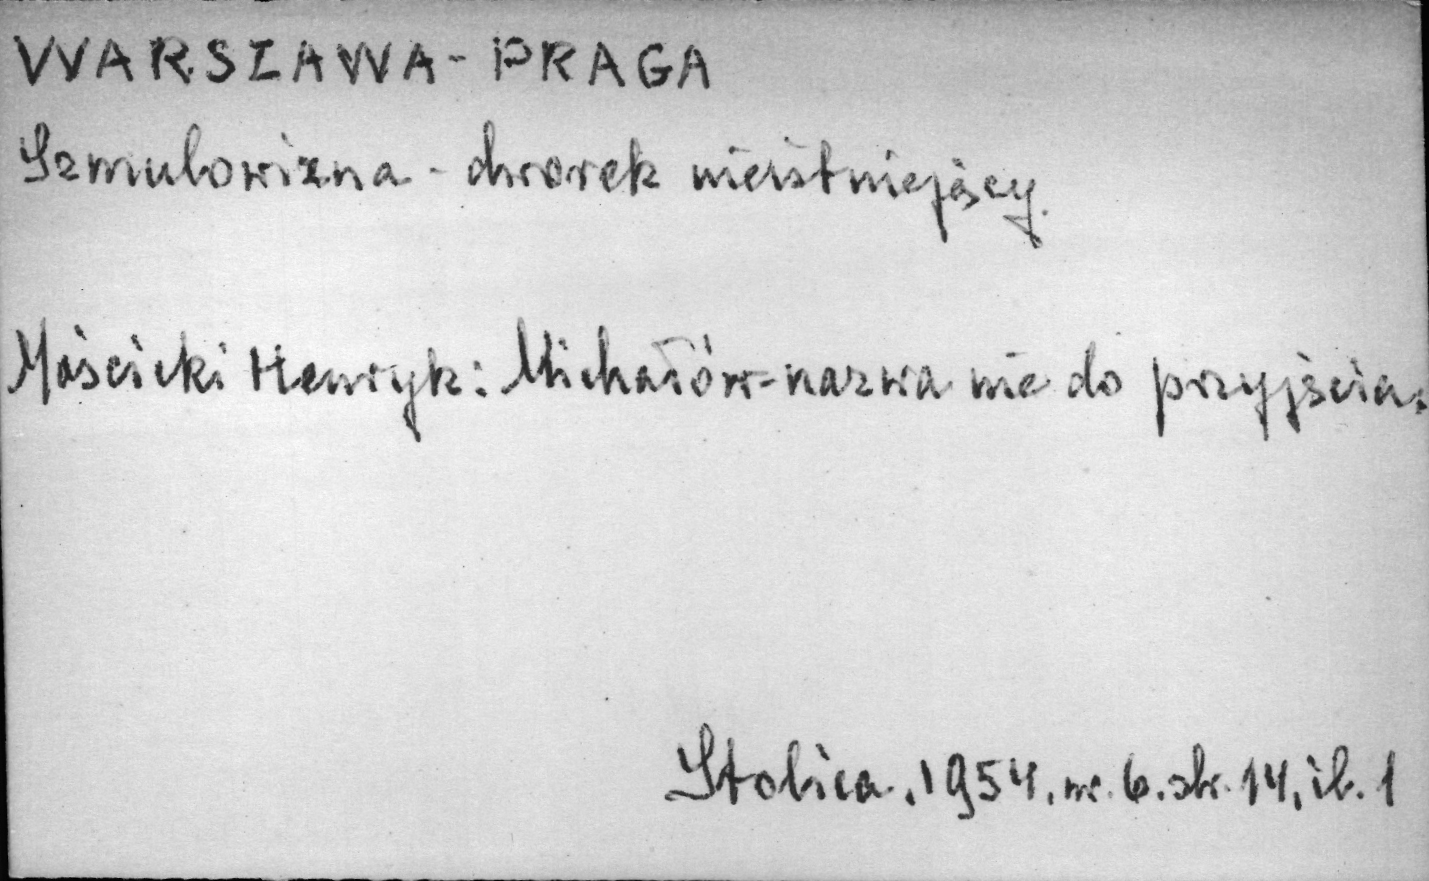 WARSZAWA - PRAGA
Szmulowizna - dworek nieistniejący.
Mościcki Henryk: Michałów - nazwa nie do przyjścia.
Stolica, 1954, nr. 6. str. 14, il. 1